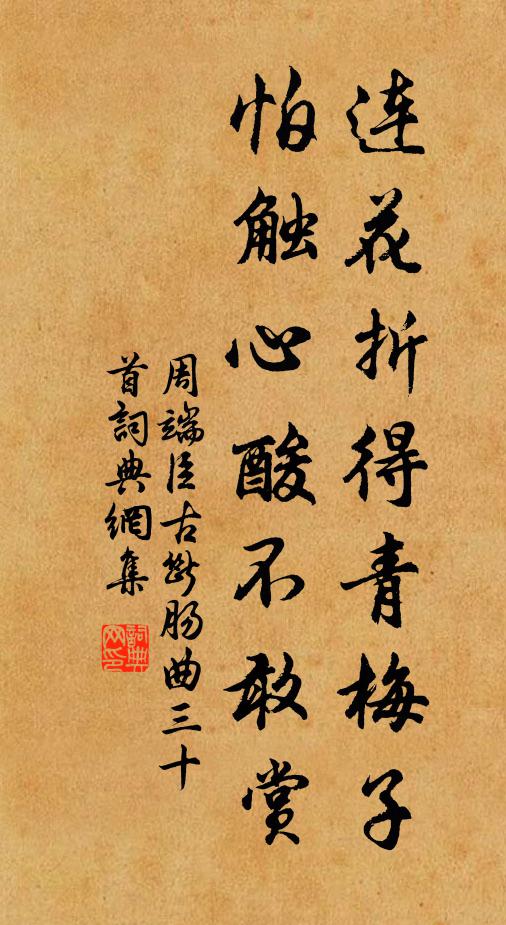 连花折得青梅子
怕触心酸不敢赏
周端臣古断肠曲三十
首詞典網集
詞典
网印